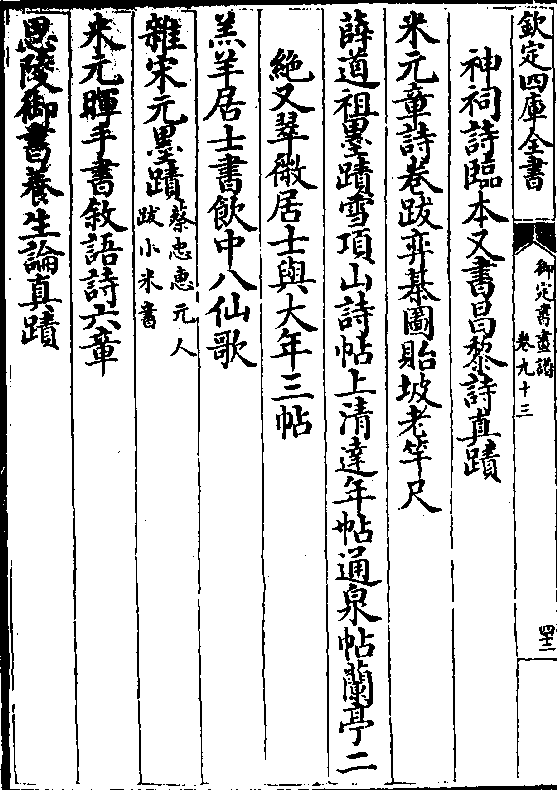 欽定四庫全書
御定書畫譜
卷九十三
四十二
神祠詩臨本又書昌黎詩真蹟
米元章詩卷跋弈棊圖貽坡老竿尺
薛道祖墨蹟雪頂山詩帖上清達年帖通泉帖蘭亭二
絶又翠微居士與大年三帖
羔羊居士書飲中八仙歌
雜宋元墨蹟蔡忠惠元人
跋小米書
米元暉手書敘語詩六章
思陵御書養生論真蹟